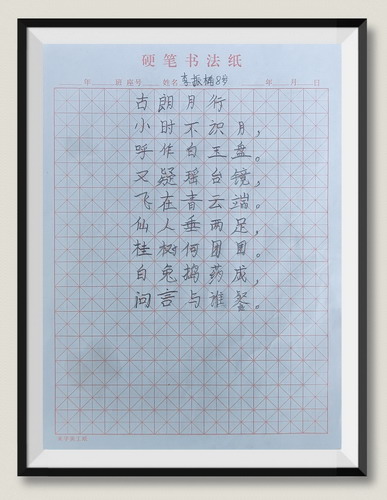 硬笔书法纸
年 班 座号 姓名 李振 8岁 年 月 日
古朗月行
小时不识月，
呼作白玉盘。
又疑瑶台镜，
飞在青云端。
仙人垂两足，
桂树何团团。
白兔捣药成，
问言与谁餐。